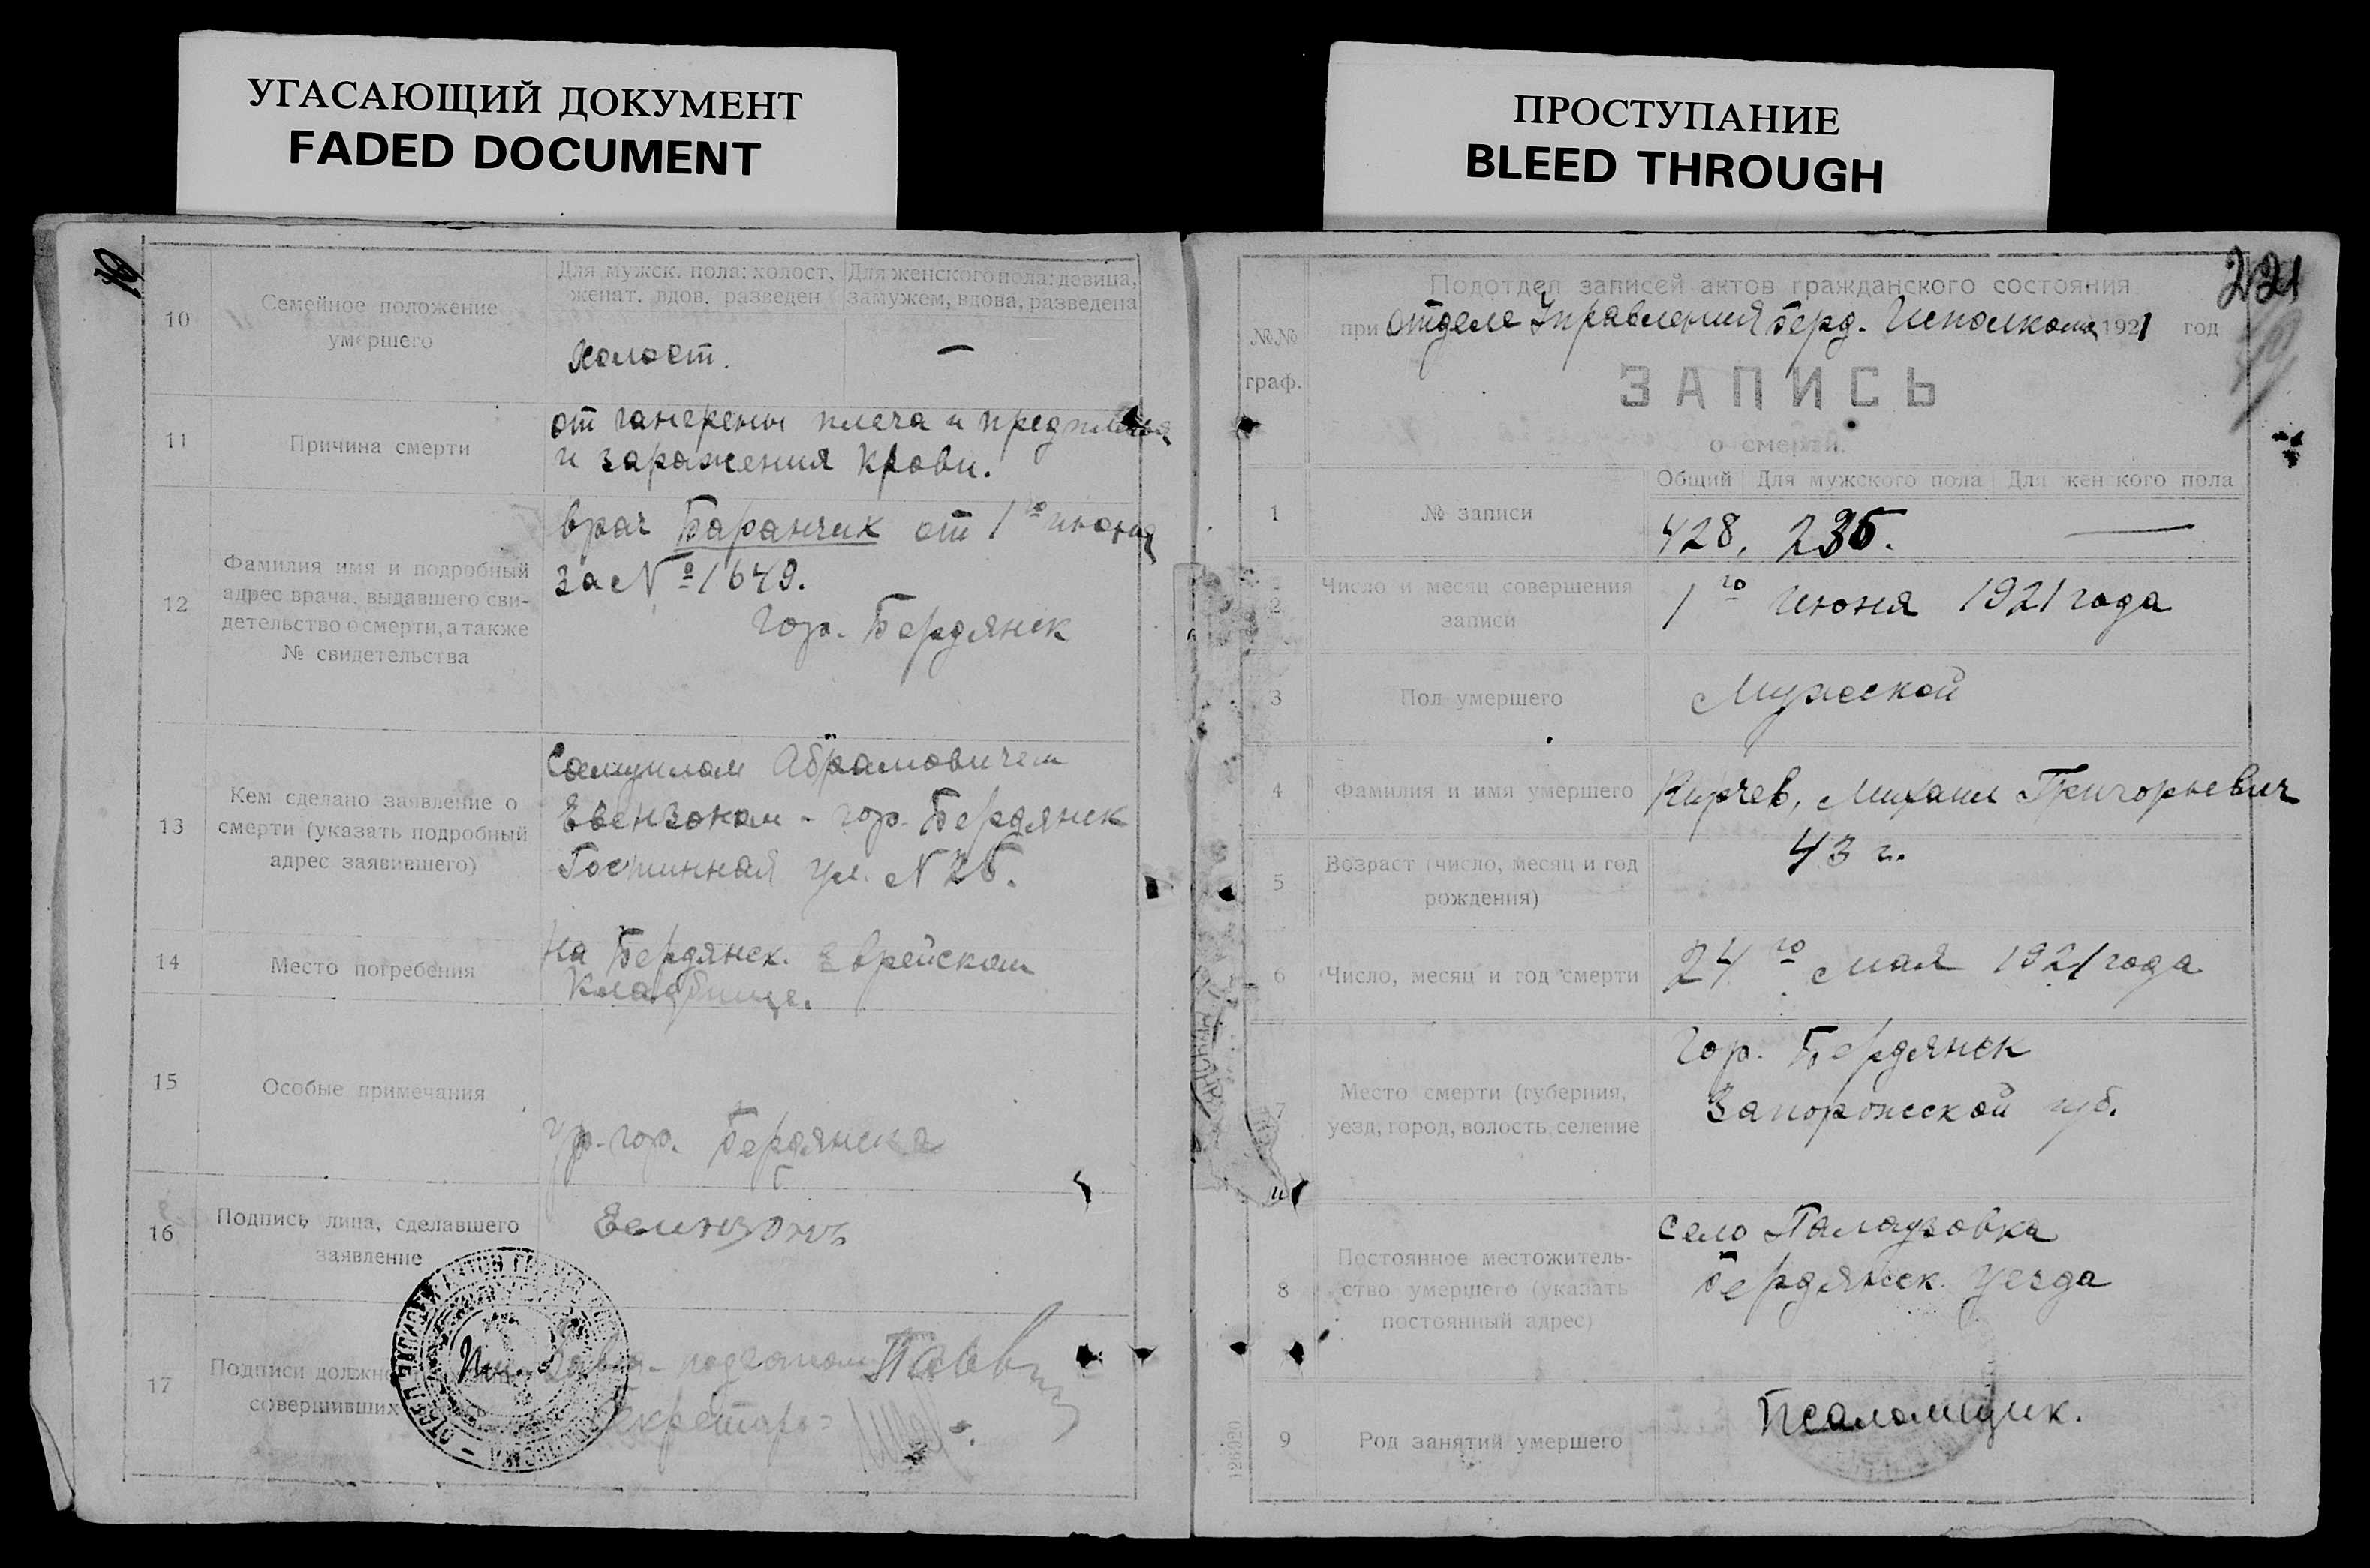 УГАСАЮЩИЙ ДОКУМЕНТ
FADED DOCUMENT
ПРОСТУПАНИЕ
BLEED THROUGH
10
Семейное положение
умершего
Для мужск. пола: холост,
женат, вдов. разведен
Для женского пола: девица,
замужем, вдова, разведена
Холост.
—
11
Причина смерти
от гангрены плеча и предплечья
и заражения крови.
12
Фамилия имя и подробный
адрес врача, выдавшего сви-
детельство о смерти, а также
№ свидетельства
врач Баранчик от 1го июня
за № 1649.
гор. Бердянск
13
Кем сделано заявление о
смерти (указать подробный
адрес заявившего)
Самуилом Абрамовичем
гор. Бердянск
Гостинная ул. N 25.
14
Место погребения
на Бердянск. Еврейском
Кладбище.
15
Особые примечания
гр. гор. Бердянска
16
Подпись лица, сделавшего
заявление
17
Подписи должно
совершивших
Секретарь
221
№№
граф.
Подотдел записей актов гражданского состояния
при отделе Управления Берд. Исполкома 1921 год
ЗАПИСЬ
о смерти.
1
№ записи
Общий
Для мужского пола
Для женского пола
428,
235.
—
2
Число и месяц совершения
записи
1го Июня 1921 года
3
Пол умершего
Мужской
4
Фамилия и имя умершего
Кирчев, Михаил Григорьевич
5
Возраст (число, месяц и год
рождения)
43 г.
6
Число, месяц и год смерти
24го Мая 1921 года
7
Место смерти (губерния,
уезд, город, волость, селение
гор. Бердянск
Запорожской губ.
8
Постоянное местожитель-
ство умершего (указать
постоянный адрес)
село Палаузовка
Бердянск. уезда
9
Род занятий умершего
Псаломщик.
126920